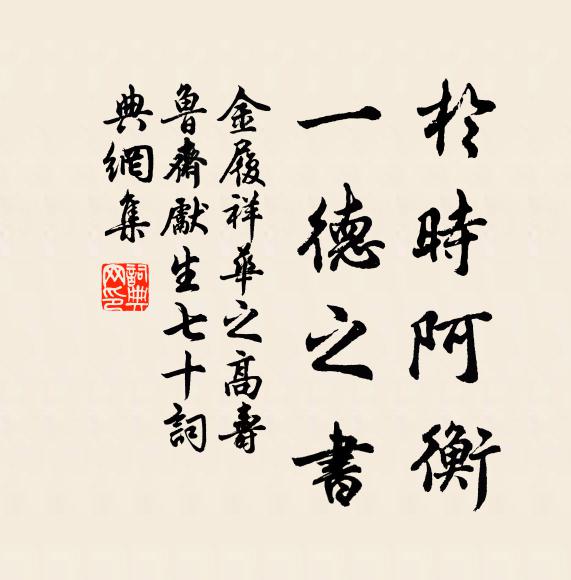 於時阿衡
一德之書
金履祥華之高壽
魯齋獻生七十詞
典網集
詞典
网印